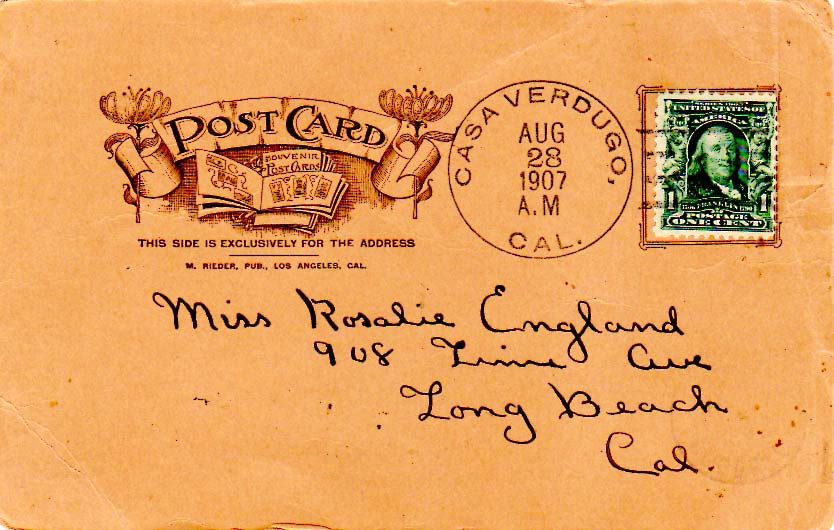 POST CARD
SOUVENIR
POST CARDS
THIS SIDE IS EXCLUSIVELY FOR THE ADDRESS
M. RIEDER, PUB., LOS ANGELES, CAL.
CASA VERDUGO,
AUG
28
1907
A.M
CAL.
SERIES 1902
UNITED STATES OF
AMERICA
1 1
1706 FRANKLIN 1790
POSTAGE
ONE CENT
Miss Rosalie England
908 Lime Ave
Long Beach
Cal.